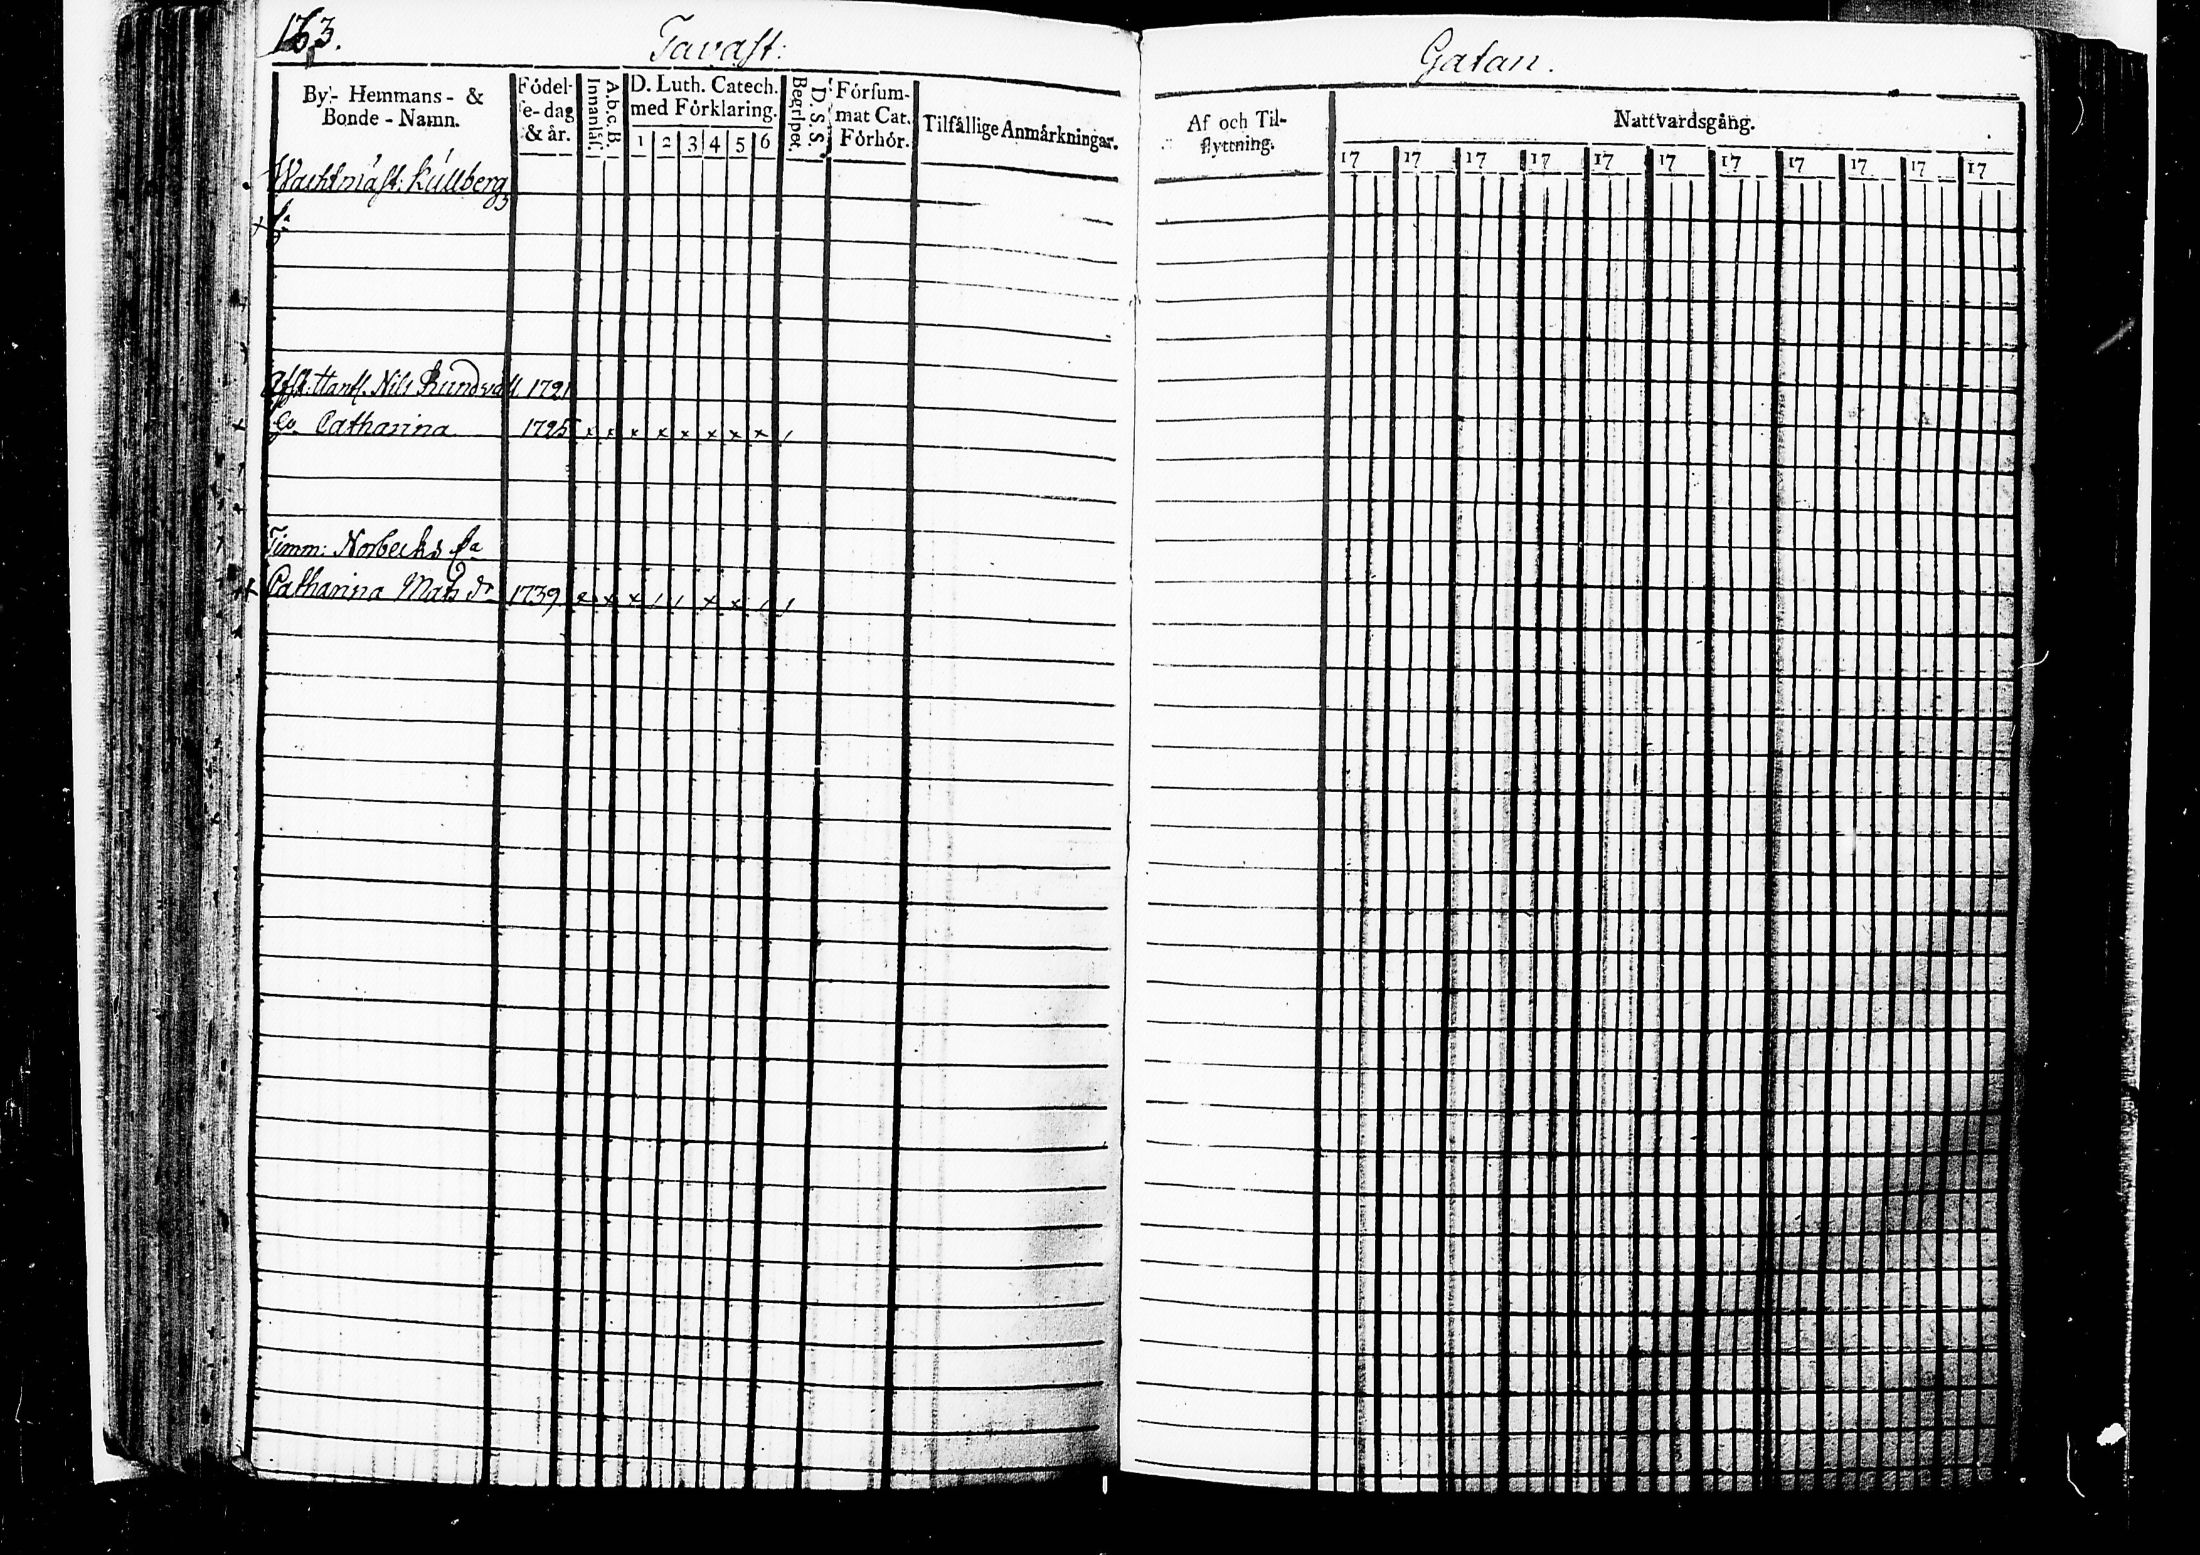 163. Tavast: Gatan.
By- Hemmans- &
Bonde-Namn.
Födel-
se-dag
& år.
Innanläs.
A.b.c.B.
D. Luth. Catech.
med Förklaring.
1 2 3 4 5 6
Begripet.
D.S.S.
Försum-
mat Cat.
Förhör.
Tilfällige Anmärkningar.
Af och Til-
flyttning.
Nattvardsgång.
17 17 17 17 17 17 17 17 17 17 17
Wachtmäst: Kullberg
Nils Rundvall 1721
Catharina 1725 x x x x x x x x /
Timm: Norbecks
Catharina Mats dr 1739 x x / / x x / /